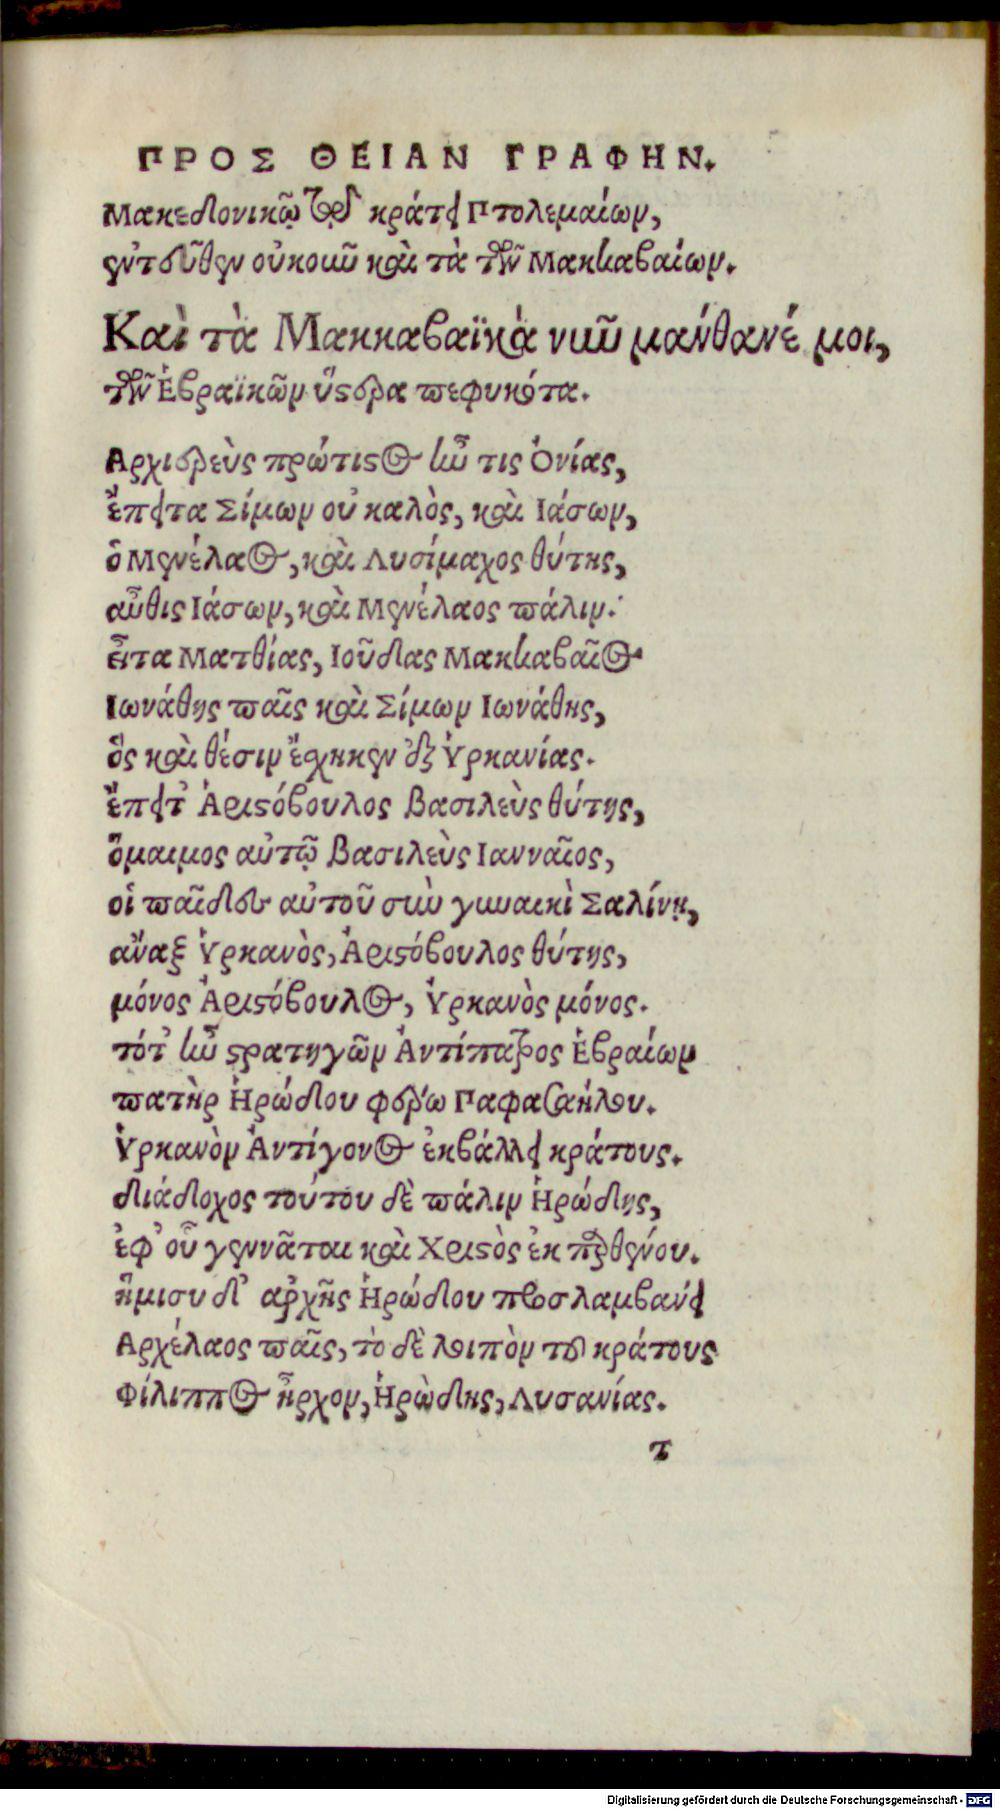 ΠΡΟΣ ΘΕΙΑΝ ΓΡΑΦΗΝ.
Μακεδονικῷ κράτει Πτολεμαίων,
ἐντεῦθεν οὐκοιῦ καὶ τὰ τῶν Μακκαβαίων.
Καὶ τὰ Μακκαβαϊκὰ νιῦ μάνθανέ μοι,
τῶν Ἑβραϊκῶν ὕστερα πεφυκότα.
Αρχιερεὺς πρώτιστος ἦν τις Ὀνίας,
ἔπειτα Σίμων οὐ καλὸς, καὶ Ιάσων,
ὁ Μενέλαος, καὶ Λυσίμαχος θύτης,
αὖθις Ιάσων, καὶ Μενέλαος πάλιν·
εἶτα Ματθίας, Ιοῦδας Μακκαβαῖος
Ιωνάθης παῖς καὶ Σίμων Ιωνάθης,
ὃς καὶ θέσιν ἔσχηκεν ἐξ Ὑρκανίας.
ἔπειτ' Ἀριστόβουλος βασιλεὺς θύτης,
ὅμαιμος αὐτῷ βασιλεὺς Ιανναῖος,
οἱ παῖδες αὐτοῦ σιὺ γυναικὶ Σαλίνῃ,
ἄναξ Ὑρκανὸς, Ἀριστόβουλος θύτης,
μόνος Ἀριστόβουλος, Ὑρκανὸς μόνος.
τότ' ἦν στρατηγῶν Ἀντίπατρος Ἑβραίων
πατὴρ Ἡρώδου φέρω Παφασαήλου.
Ὑρκανὸν Ἀντίγονος ἐκβάλλει κράτους.
διάδοχος τούτου δὲ πάλιν Ἡρώδης,
ἐφ' οὗ γεννᾶται καὶ Χριστὸς ἐκ παρθένου.
ἥμισυ δ' ἀρχῆς Ἡρώδου προσλαμβάνει
Αρχέλαος παῖς, τὸ δὲ λοιπὸν τοῦ κράτους
Φίλιππος ἦρχον, Ἡρώδης, Λυσανίας.
τ
Digitalisierung gefördert durch die Deutsche Forschungsgemeinschaft - DFG